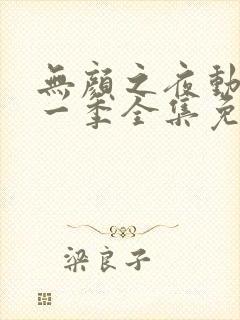 無顏之夜動
一季全集免
梁良子